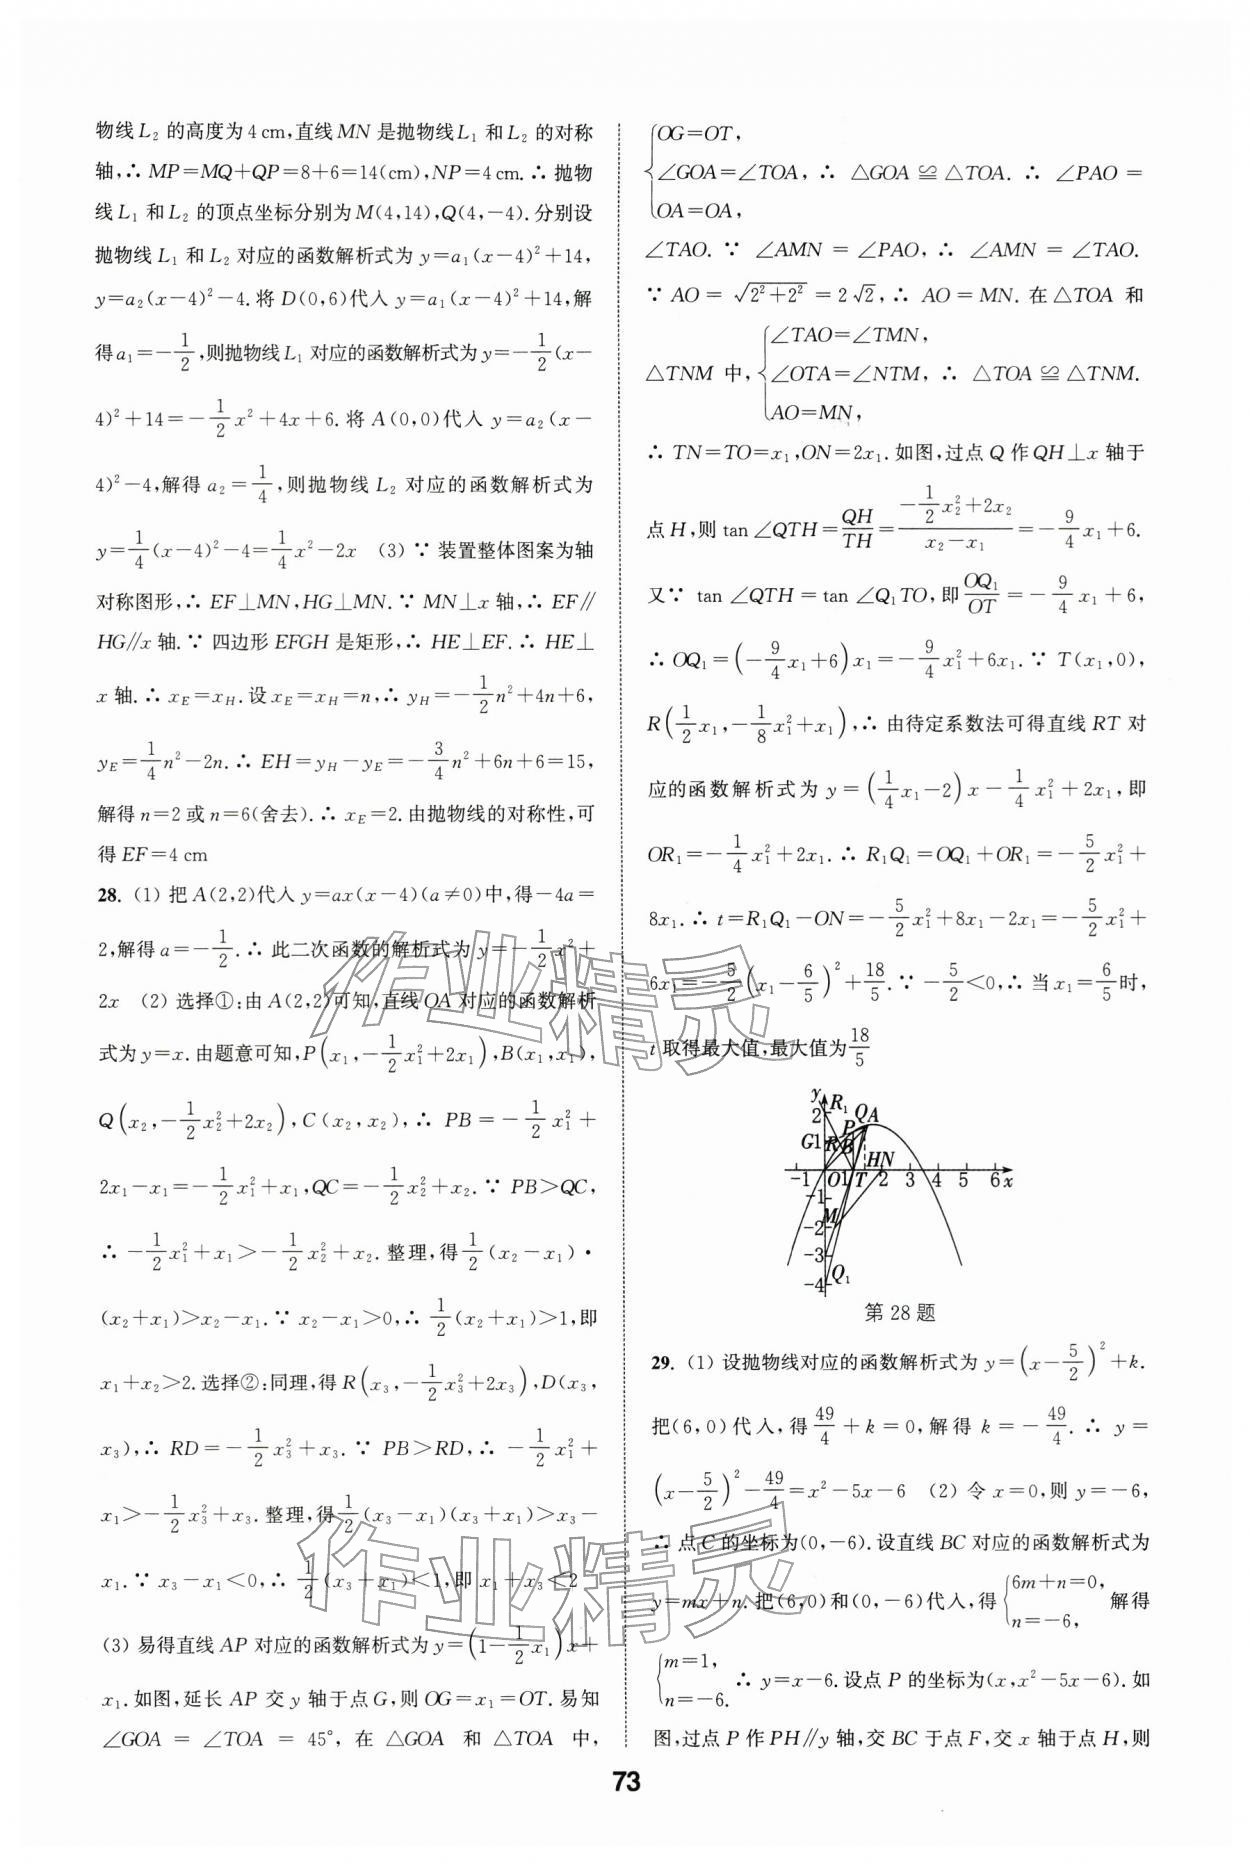 物线 L₂ 的高度为 4 cm,直线 MN 是抛物线 L₁ 和 L₂ 的对称
轴,∴ MP=MQ+QP=8+6=14(cm),NP=4 cm.∴ 抛物
线 L₁ 和 L₂ 的顶点坐标分别为 M(4,14),Q(4,-4).分别设
抛物线 L₁ 和 L₂ 对应的函数解析式为 y=a₁(x-4)²+14,
y=a₂(x-4)²-4.将 D(0,6)代入 y=a₁(x-4)²+14,解
得 a₁=-1/2,则抛物线 L₁ 对应的函数解析式为 y=-1/2(x-
4)²+14=-1/2x²+4x+6.将 A(0,0)代入 y=a₂(x-
4)²-4,解得 a₂=1/4,则抛物线 L₂ 对应的函数解析式为
y=1/4(x-4)²-4=1/4x²-2x (3) ∵ 装置整体图案为轴
对称图形,∴ EF⊥MN,HG⊥MN.∵ MN⊥x 轴,∴ EF∥
HG∥x 轴.∵ 四边形 EFGH 是矩形,∴ HE⊥EF.∴ HE⊥
x 轴.∴ x_E=x_H.设 x_E=x_H=n,∴ y_H=-1/2n²+4n+6,
y_E=1/4n²-2n.∴ EH=y_H-y_E=-3/4n²+6n+6=15,
解得 n=2 或 n=6(舍去).∴ x_E=2.由抛物线的对称性,可
得 EF=4 cm
28. (1) 把 A(2,2)代入 y=ax(x-4)(a≠0)中,得-4a=
2,解得 a=-1/2.∴ 此二次函数的解析式为 y=-1/2x²+
2x (2) 选择①:由 A(2,2)可知,直线 OA 对应的函数解析
式为 y=x.由题意可知,P(x₁,-1/2x₁²+2x₁),B(x₁,x₁),
Q(x₂,-1/2x₂²+2x₂),C(x₂,x₂),∴ PB=-1/2x₁²+
2x₁-x₁=-1/2x₁²+x₁,QC=-1/2x₂²+x₂.∵ PB>QC,
∴ -1/2x₁²+x₁>-1/2x₂²+x₂.整理,得1/2(x₂-x₁)·
(x₂+x₁)>x₂-x₁.∵ x₂-x₁>0,∴ 1/2(x₂+x₁)>1,即
x₁+x₂>2.选择②:同理,得 R(x₃,-1/2x₃²+2x₃),D(x₃,
x₃),∴ RD=-1/2x₃²+x₃.∵ PB>RD,∴ -1/2x₁²+
x₁>-1/2x₃²+x₃.整理,得1/2(x₃-x₁)(x₃+x₁)>x₃-
x₁.∵ x₃-x₁<0,∴ 1/2(x₃+x₁)<1,即 x₁+x₃<2
(3) 易得直线 AP 对应的函数解析式为 y=(1-1/2x₁)x+
x₁.如图,延长 AP 交 y 轴于点 G,则 OG=x₁=OT.易知
∠GOA = ∠TOA = 45°, 在 △GOA 和 △TOA 中,
{OG=OT,
∠GOA=∠TOA, ∴ △GOA ≌ △TOA. ∴ ∠PAO =
OA=OA,
∠TAO. ∵ ∠AMN = ∠PAO, ∴ ∠AMN = ∠TAO.
∵ AO = √(2²+2²) = 2√2, ∴ AO=MN. 在 △TOA 和
{∠TAO=∠TMN,
△TNM 中, ∠OTA=∠NTM, ∴ △TOA ≌ △TNM.
AO=MN,
∴ TN=TO=x₁,ON=2x₁.如图,过点 Q 作 QH⊥x 轴于
点 H,则 tan ∠QTH=QH/TH=(-1/2x₂²+2x₂)/(x₂-x₁)=-9/4x₁+6.
又∵ tan ∠QTH=tan ∠Q₁TO,即OQ₁/OT=-9/4x₁+6,
∴ OQ₁=(-9/4x₁+6)x₁=-9/4x₁²+6x₁.∵ T(x₁,0),
R(1/2x₁,-1/8x₁²+x₁),∴ 由待定系数法可得直线 RT 对
应的函数解析式为 y=(1/4x₁-2)x-1/4x₁²+2x₁,即
OR₁=-1/4x₁²+2x₁.∴ R₁Q₁=OQ₁+OR₁=-5/2x₁²+
8x₁.∴ t=R₁Q₁-ON=-5/2x₁²+8x₁-2x₁=-5/2x₁²+
6x₁=-5/2(x₁-6/5)²+18/5.∵ -5/2<0,∴ 当 x₁=6/5时,
t 取得最大值,最大值为18/5
y
2 R₁ P Q A
G 1 R B
H N
-1 O 1 T 2 3 4 5 6 x
-1
M
-2
-3
-4 Q₁
第 28 题
29. (1) 设抛物线对应的函数解析式为 y=(x-5/2)²+k.
把(6,0)代入,得49/4+k=0,解得 k=-49/4.∴ y=
(x-5/2)²-49/4=x²-5x-6 (2) 令 x=0,则 y=-6,
∴ 点 C 的坐标为(0,-6).设直线 BC 对应的函数解析式为
y=mx+n.把(6,0)和(0,-6)代入,得{6m+n=0, n=-6, 解得
{m=1, n=-6. ∴ y=x-6.设点 P 的坐标为(x,x²-5x-6).如
图,过点 P 作 PH∥y 轴,交 BC 于点 F,交 x 轴于点 H,则
73
作业精灵
作业精灵